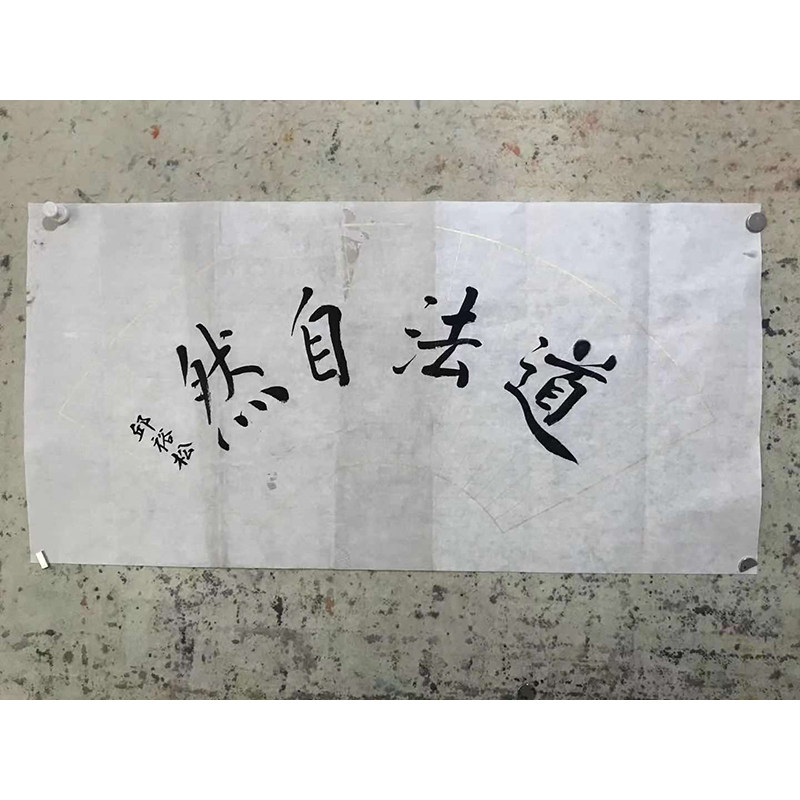 道法自然
邱裕松